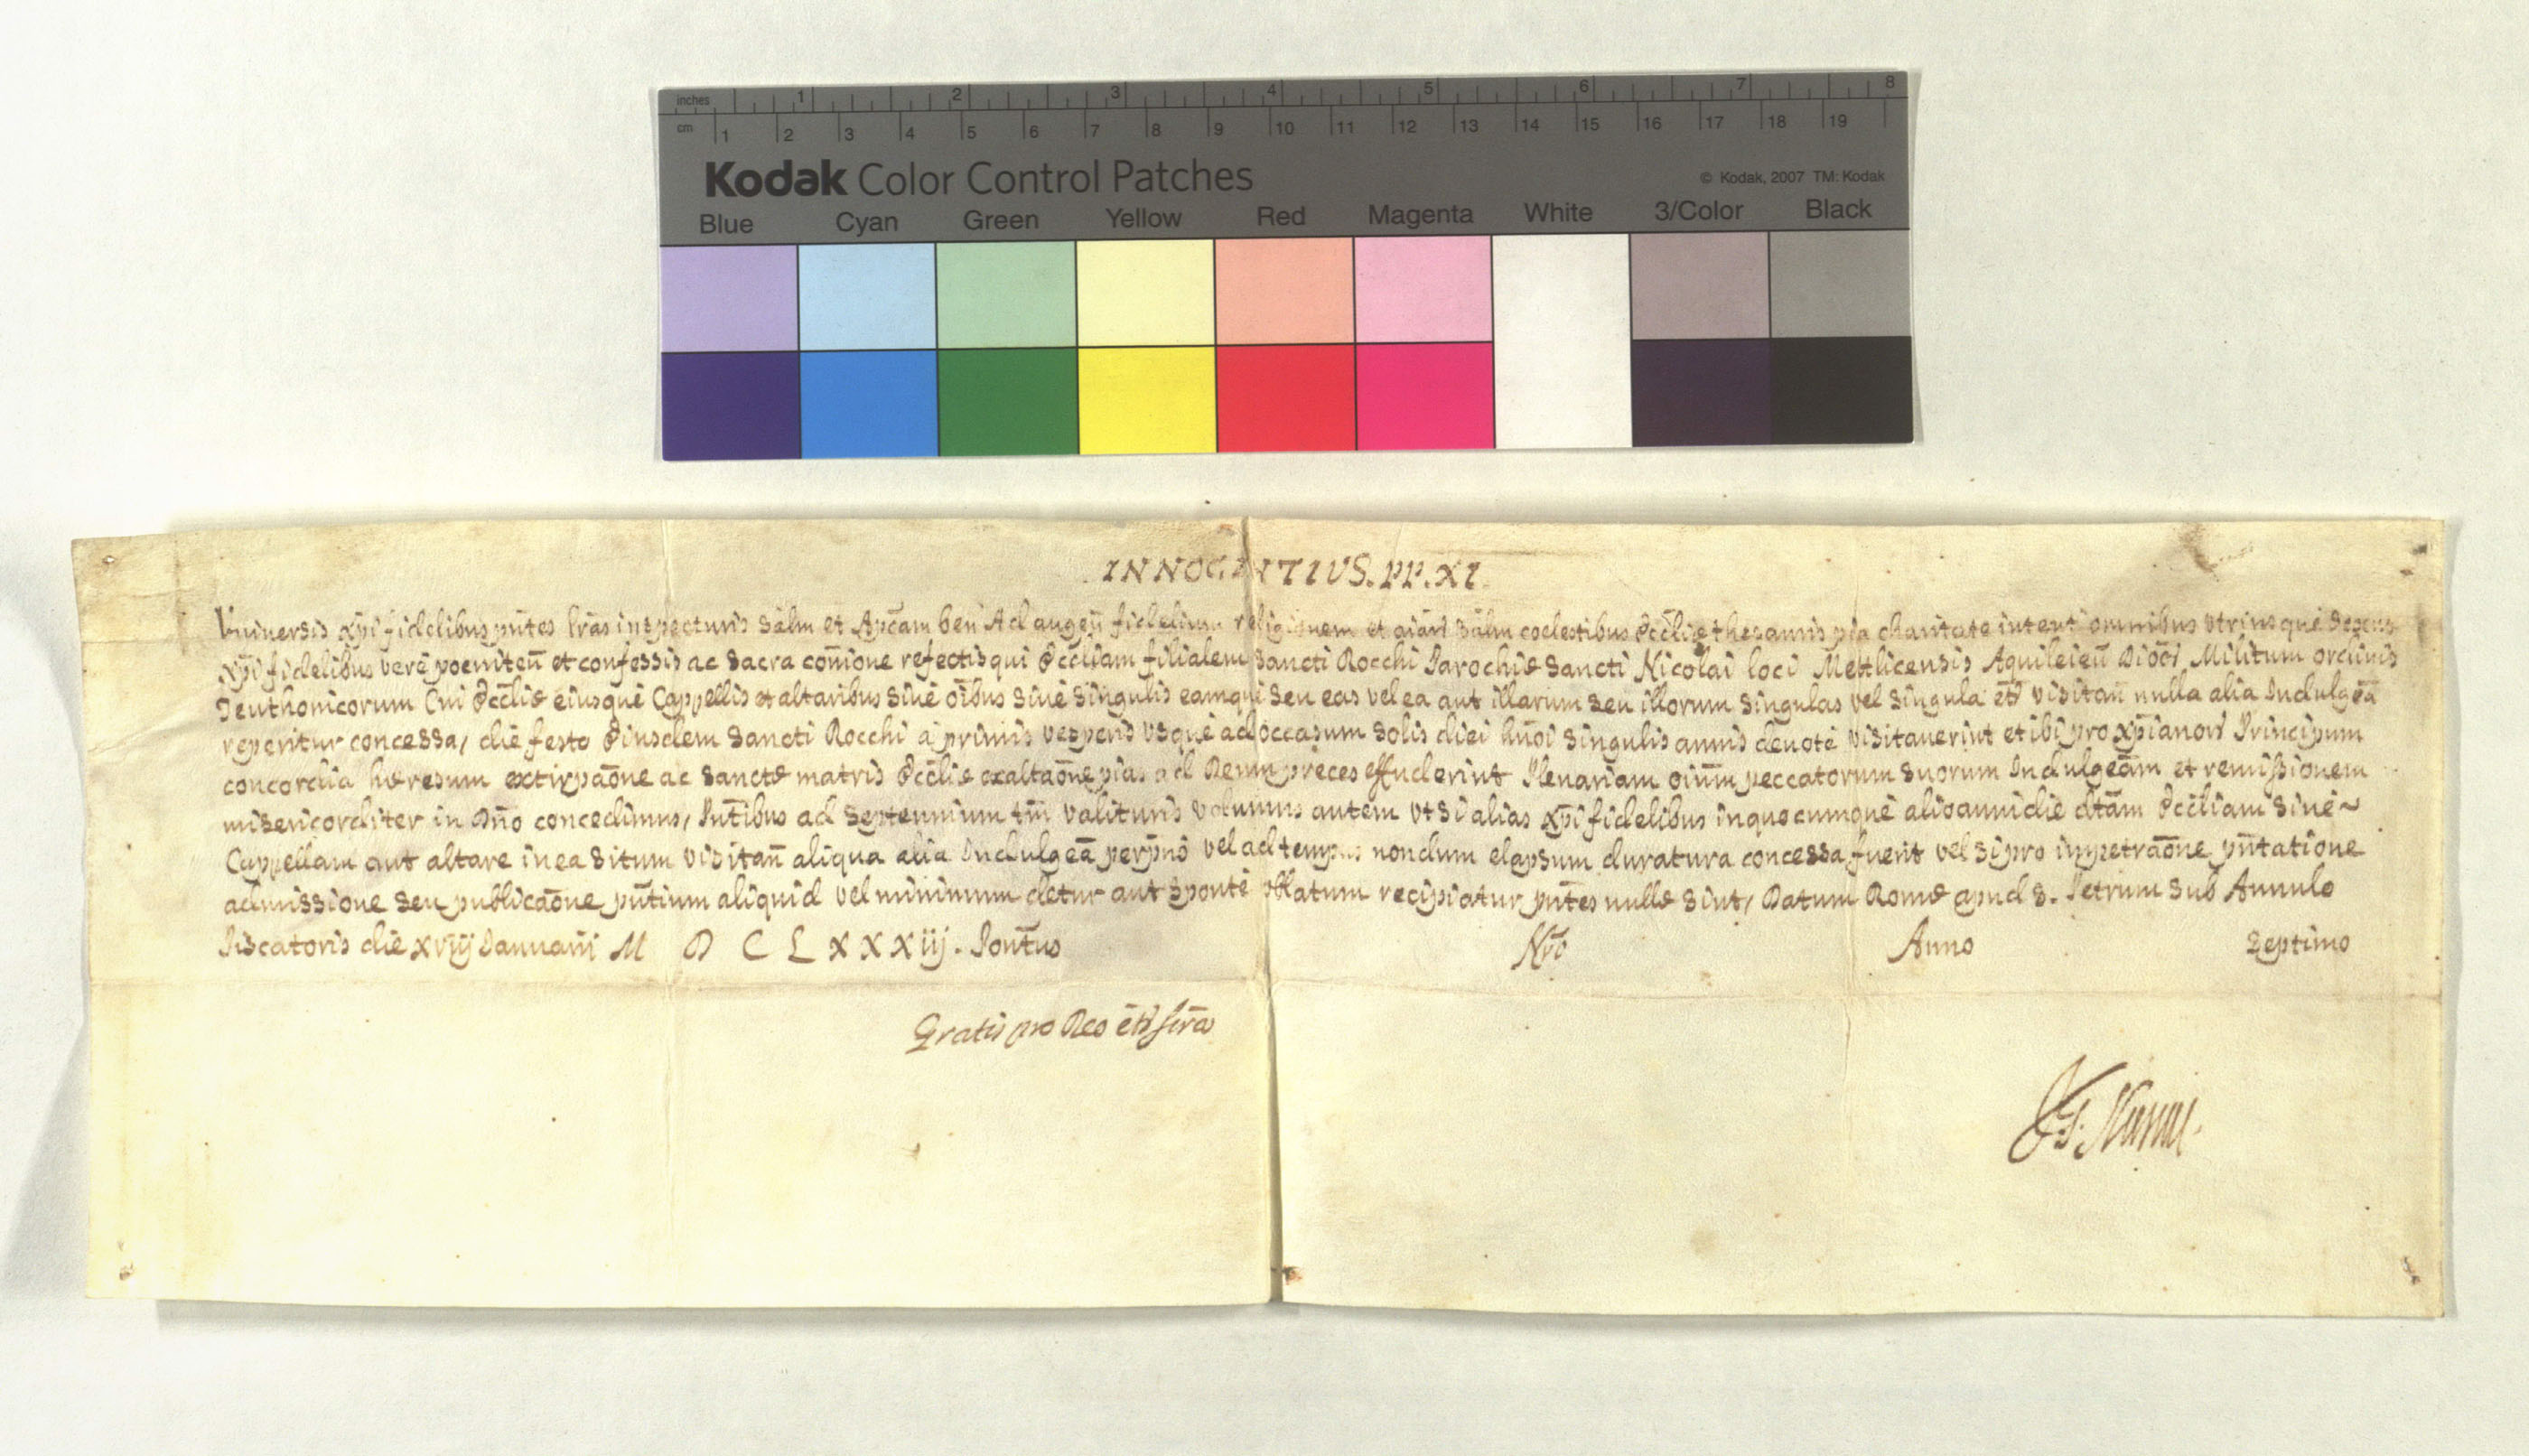 inches 1 2 3 4 5 6 7 8
cm 1 2 3 4 5 6 7 8 9 10 11 12 13 14 15 16 17 18 19
Kodak Color Control Patches © Kodak, 2007 TM: Kodak
Blue Cyan Green Yellow Red Magenta White 3/Color Black
INNOCENTIUS. PP. XI.
Universis xp̄i fidelibus pn̄tes lrās inspecturis Salm̄ et Apc̄am ben̄ Ad augen̄ fidelium religionem et aīarū Salm̄ coelestibus Eccliē thesauris pia charitate intenti omnibus utriusque Sexus
xp̄i fidelibus verè poeniten̄ et confessis ac Sacra com̄ione refectis qui Eccliam filialem Sancti Rocchi Parochiē Sancti Nicolai loci Metlicensis Aquileien̄ Dioc̄ Militum ordinis
Teuthonicorum Cui Eccliē eiusque Cappellis et altaribus Sivè oībus Sivè Singulis eamque Seu eas vel ea aut illarum Seu illorum Singulas vel Singula et̄ visitan̄ nulla alia Indulgeā
reperitur concessa, die festo Eiusdem Sancti Rocchi à primis vesperis Usque ad occasum Solis diei hm̄oi Singulis annis devotè visitaverint et ibi pro xp̄ianorū Principum
concordia hæresum extirpaōne ac Sanctē matris Eccliē exaltaōne pias ad Deum preces effuderint Plenariam oīum peccatorum Suorum Indulgeām et remissionem
misericorditer in Dn̄o concedimus, Pn̄tibus ad Septennium tm̄ valituris volumus autem ut Si alias xp̄i fidelibus in quocumque alio anni die dtām Eccliam Sivè ~
Cappellam aut altare in ea Situm visitan̄ aliqua alia Indulgeā perpuō vel ad tempus nondum elapsum duratura concessa fuerit vel Si pro impetraōne pn̄tatione
admissione Seu publicaōne pn̄tium aliquid vel minimum detur aut Sponte oblatum recipiatur pn̄tes nullē Sint, Datum Romē apud S. Petrum Sub Annulo
Piscatoris die xviij Januarii M D C L X X X iij. Pontūs Nrō Anno Septimo
Gratis pro Deo et scrā